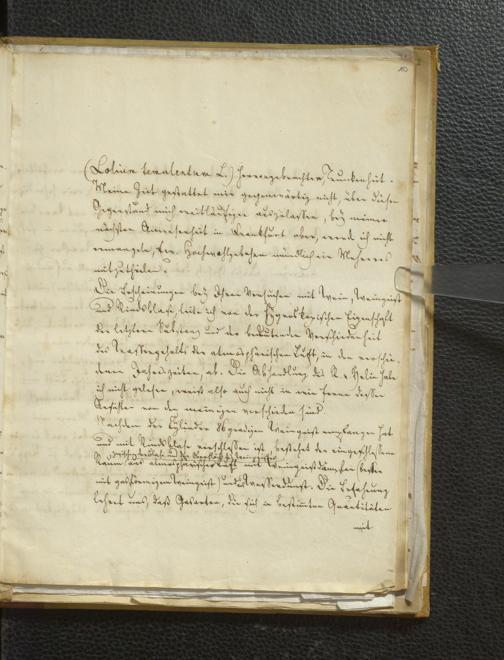 (Lolium temulentum L.) hervorgebrachten Trunkenheit.
Meine Zeit gestattet mir gegenwärtig nicht, über diesen
Gegenstand mich weitläufiger auszulassen, bey meiner
nächsten Anwesenheit in Frankfurt aber, werde ich nicht
ermangeln, Ew. Hochwohlgeboren mündlich ein Mehreres
mitzutheilen.
Die Erscheinungen bey Ihren Versuchen mit Wein, Weingeist
und Rindsblase, leite ich von der hygroskopischen Eigenschaft
der letztern und der bedeutenden Verschiedenheit
des Wassergehalts der atmosphärischen Luft, in den verschie-
denen Jahreszeiten, ab. Die Abhandlung des habe
ich nicht gelesen, weiß also auch nicht in wie fern dessen
Ansichten von den meinigen verschieden sind.
Nachdem der Cylinder Weingeist empfangen hat
und mit Rindsblase verschlossen ist, besteht der eingeschlossene
Raum aus atmosphärischer Luft mit Weingeistdämpfen
mit gasförmigem Weingeist) und Wasserdunst. Die Erfahrung
lehrt uns, daß Gasarten, die für in bestimten Quantitäten
mit